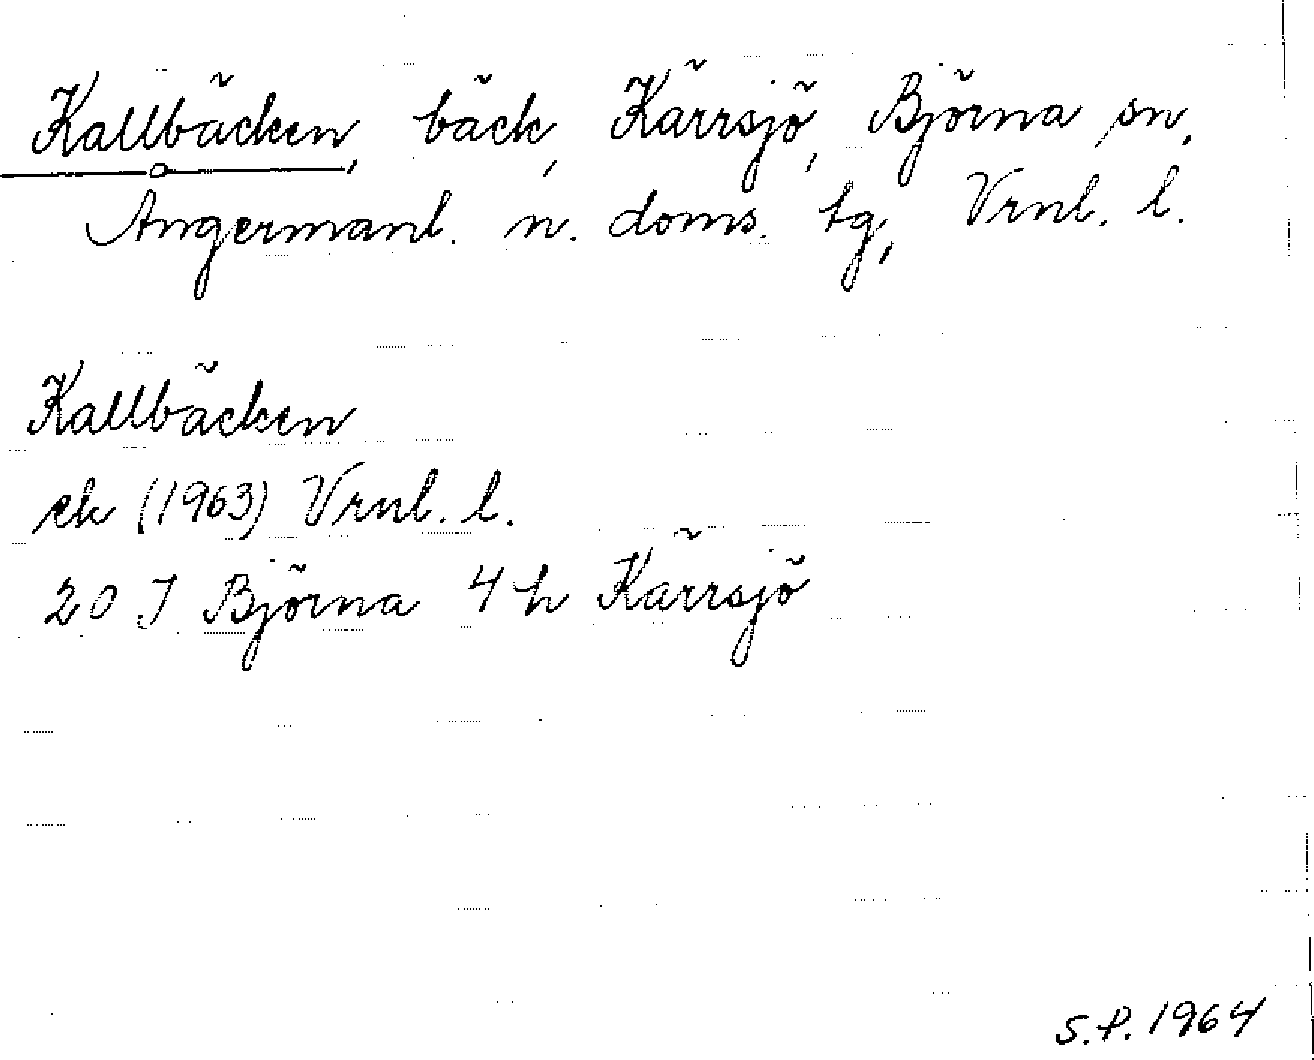 Kallbäcken, bäck, Kärrsjö, Björna sn,
Ångermanl. n. doms. tg, Vrnl. l.
Kallbäcken
ek (1963) Vrnl. l.
20 J Björna 4 h Kärrsjö
S.P. 1964